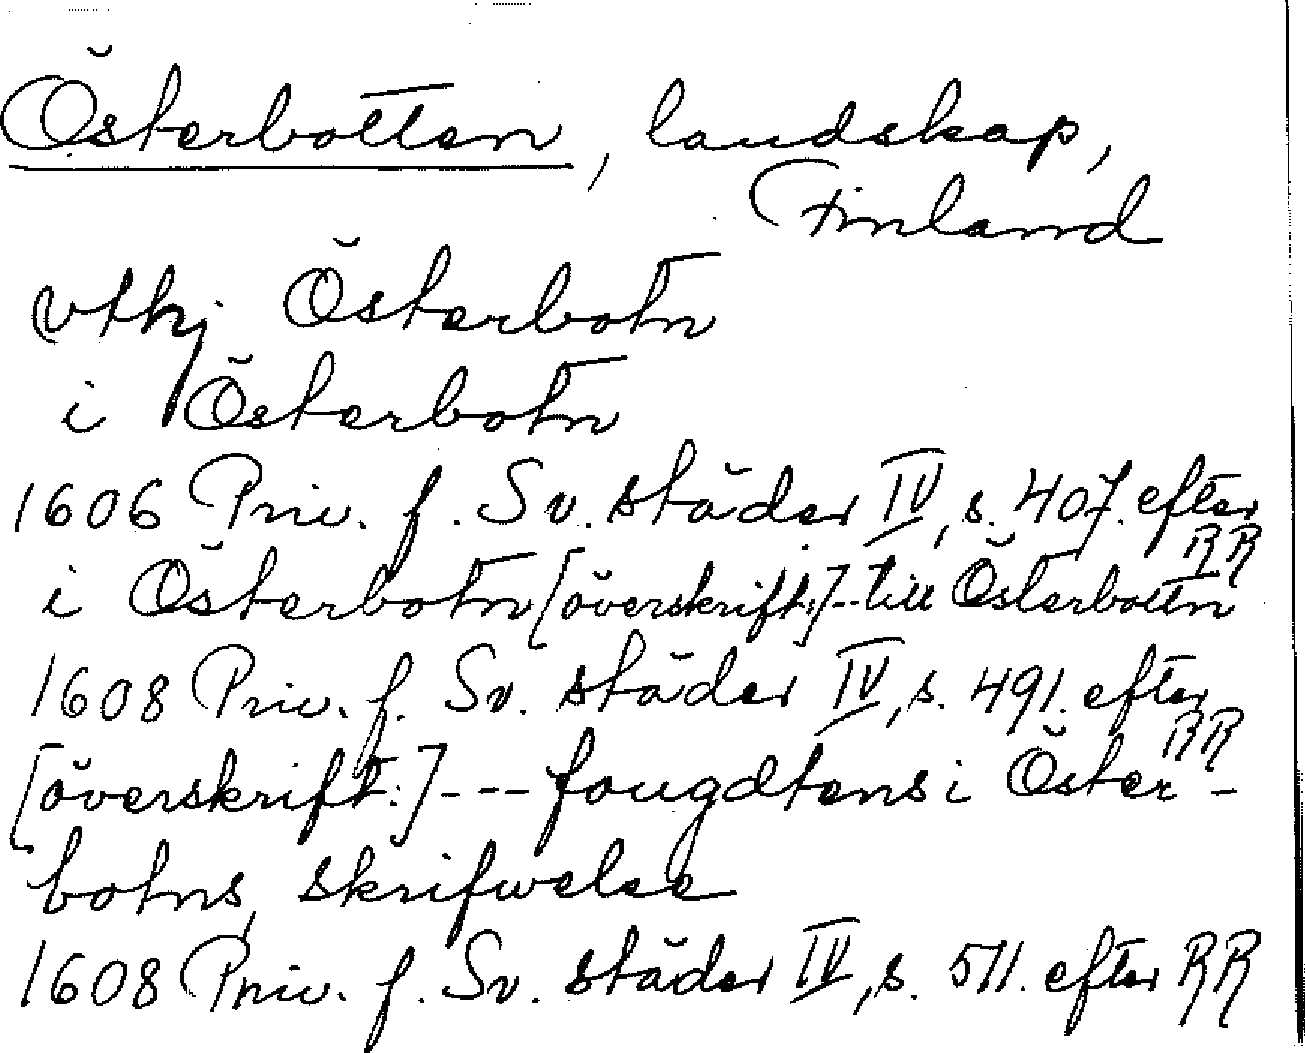 Österbotten, landskap,
Finland
vthj Österbotn
i Österbotn
1606 Priv. f. Sv. städer IV, s. 407. efter RR
i Österbotn [överskrift:]--till Österbottn
1608 Priv. f. Sv. städer IV, s. 491. efter RR
[överskrift:]--- fougdtens i Öster-
botns, skrifwelse
1608 Priv. f. Sv. städer IV, s. 511. efter RR